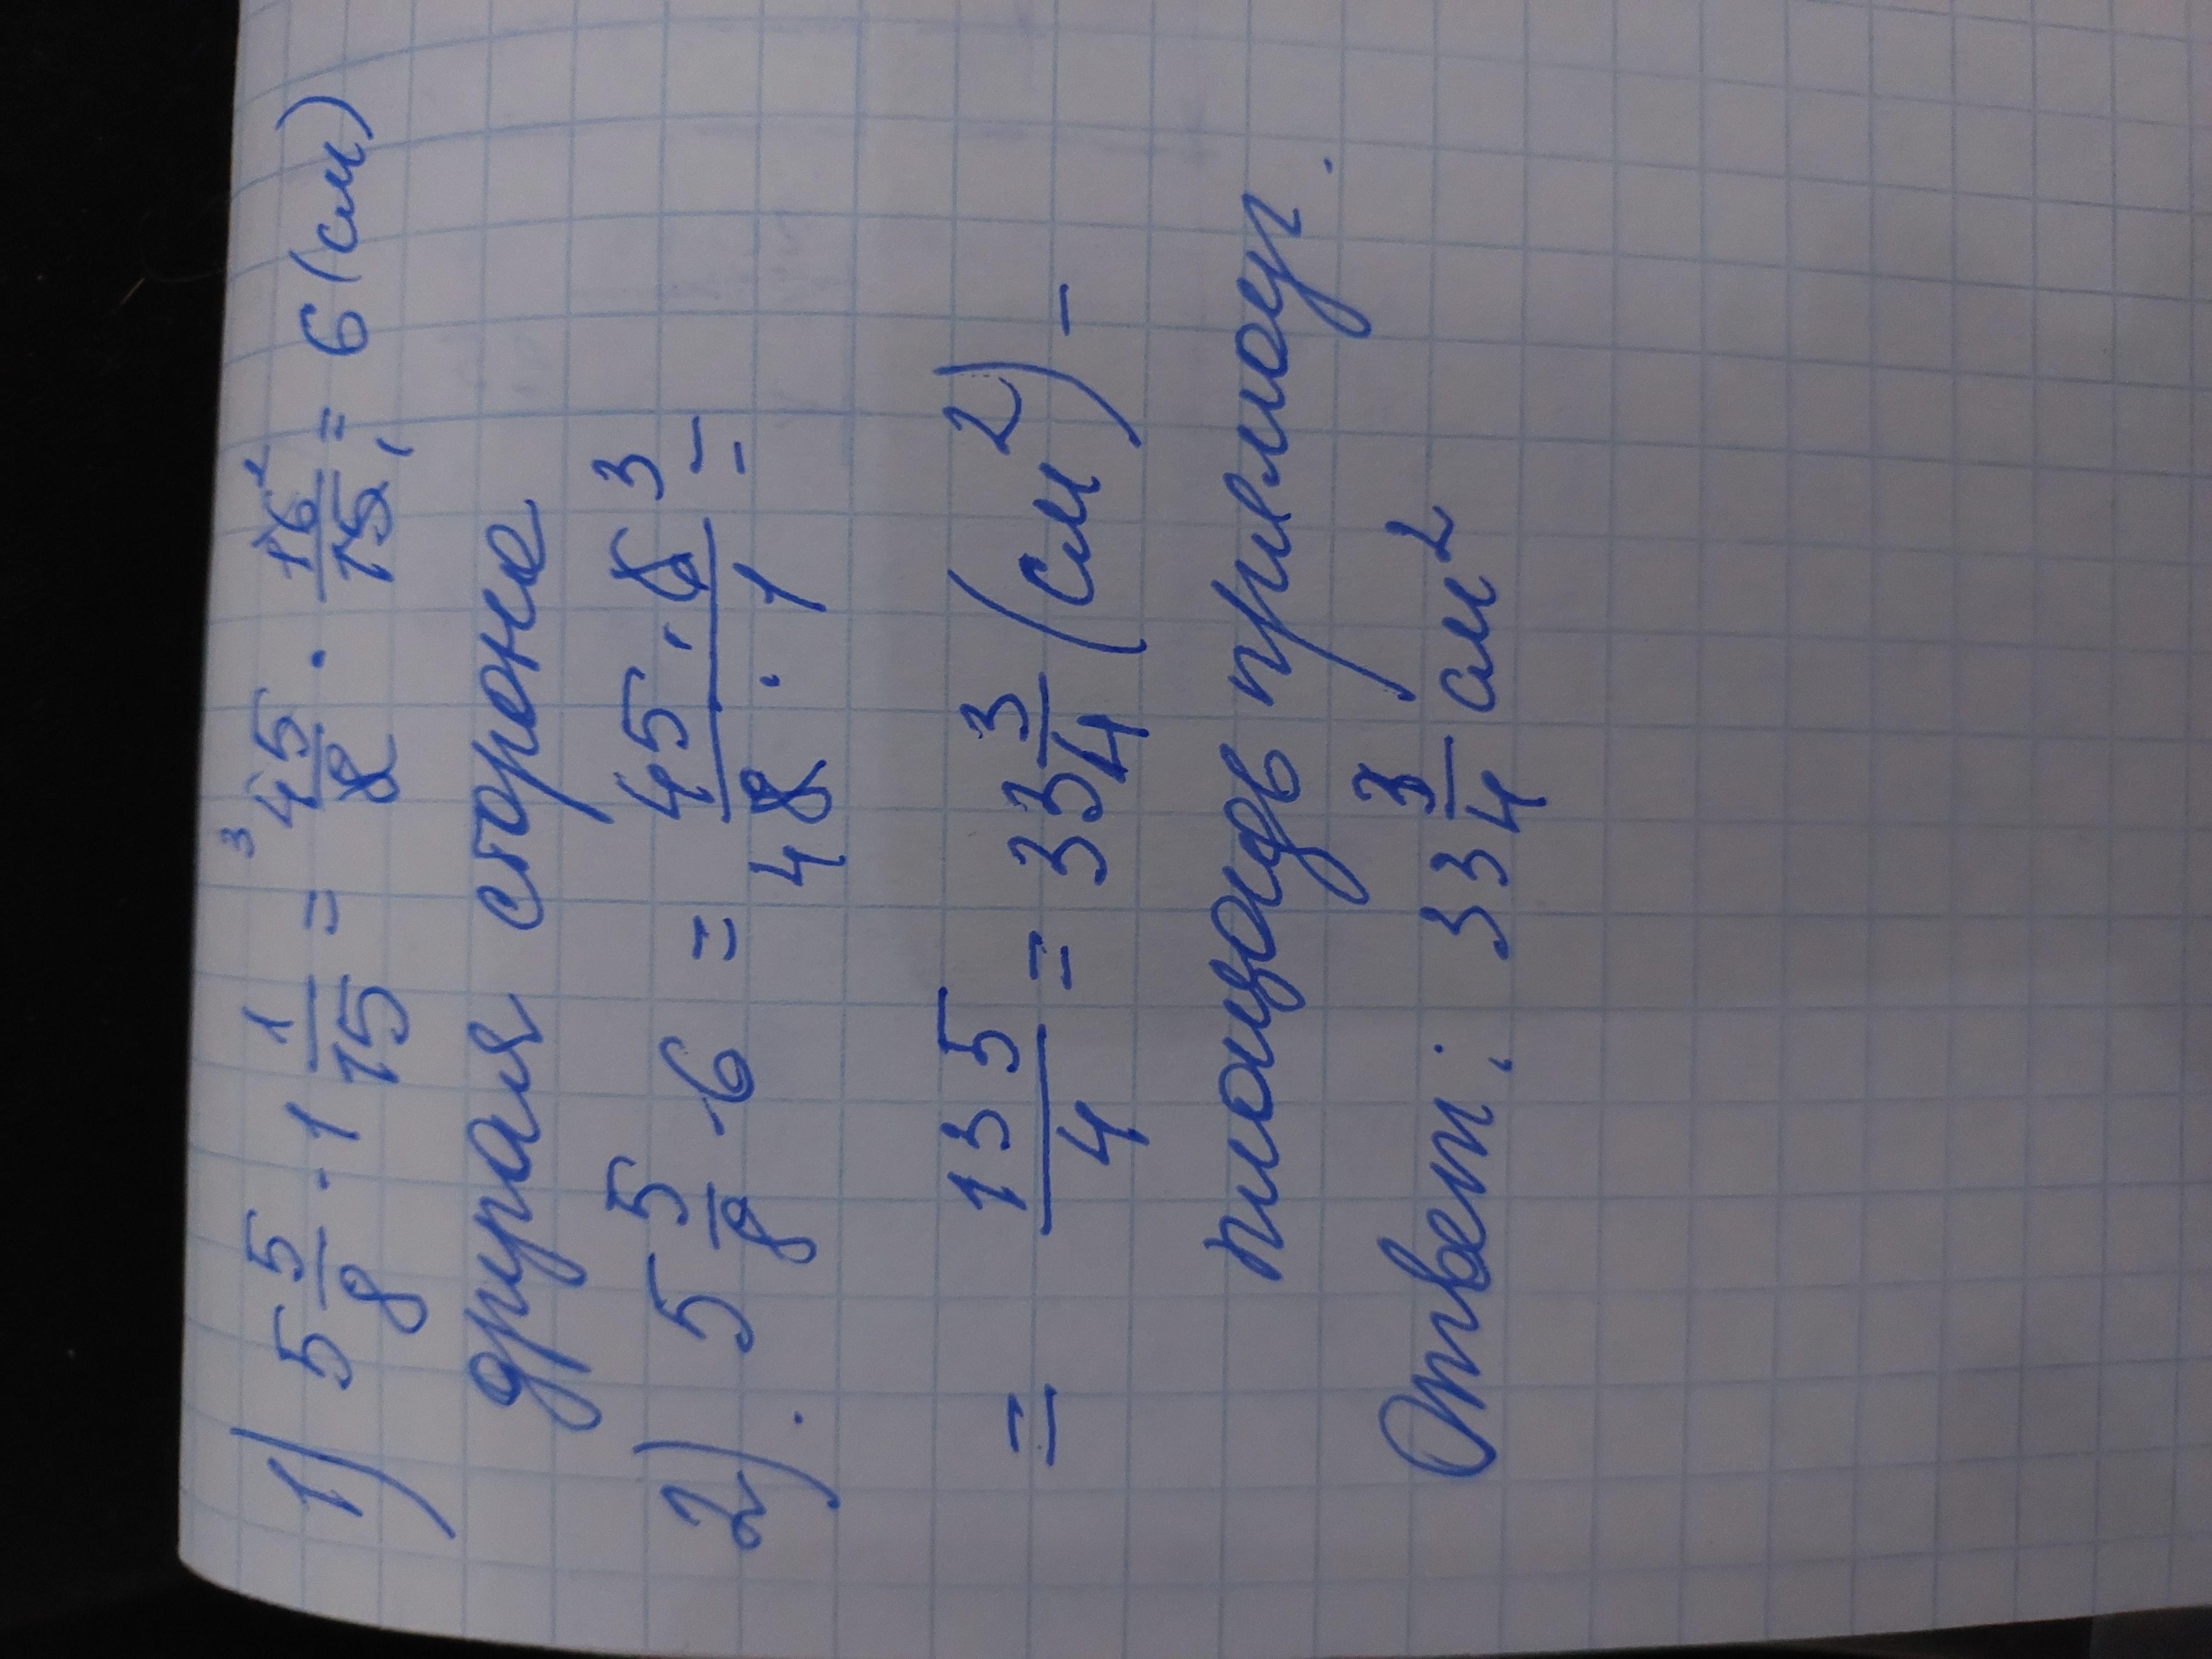 1) 5 5/8 · 1 1/15 = 45/8 3 · 16/15 2 1 = 6 (см)
другая сторона
2). 5 5/8 · 6 = 45 · 6 3 / 4 8 · 1 =
= 135/4 = 33 3/4 (см 2) –
площадь прямоуг.
Ответ: 33 3/4 см²